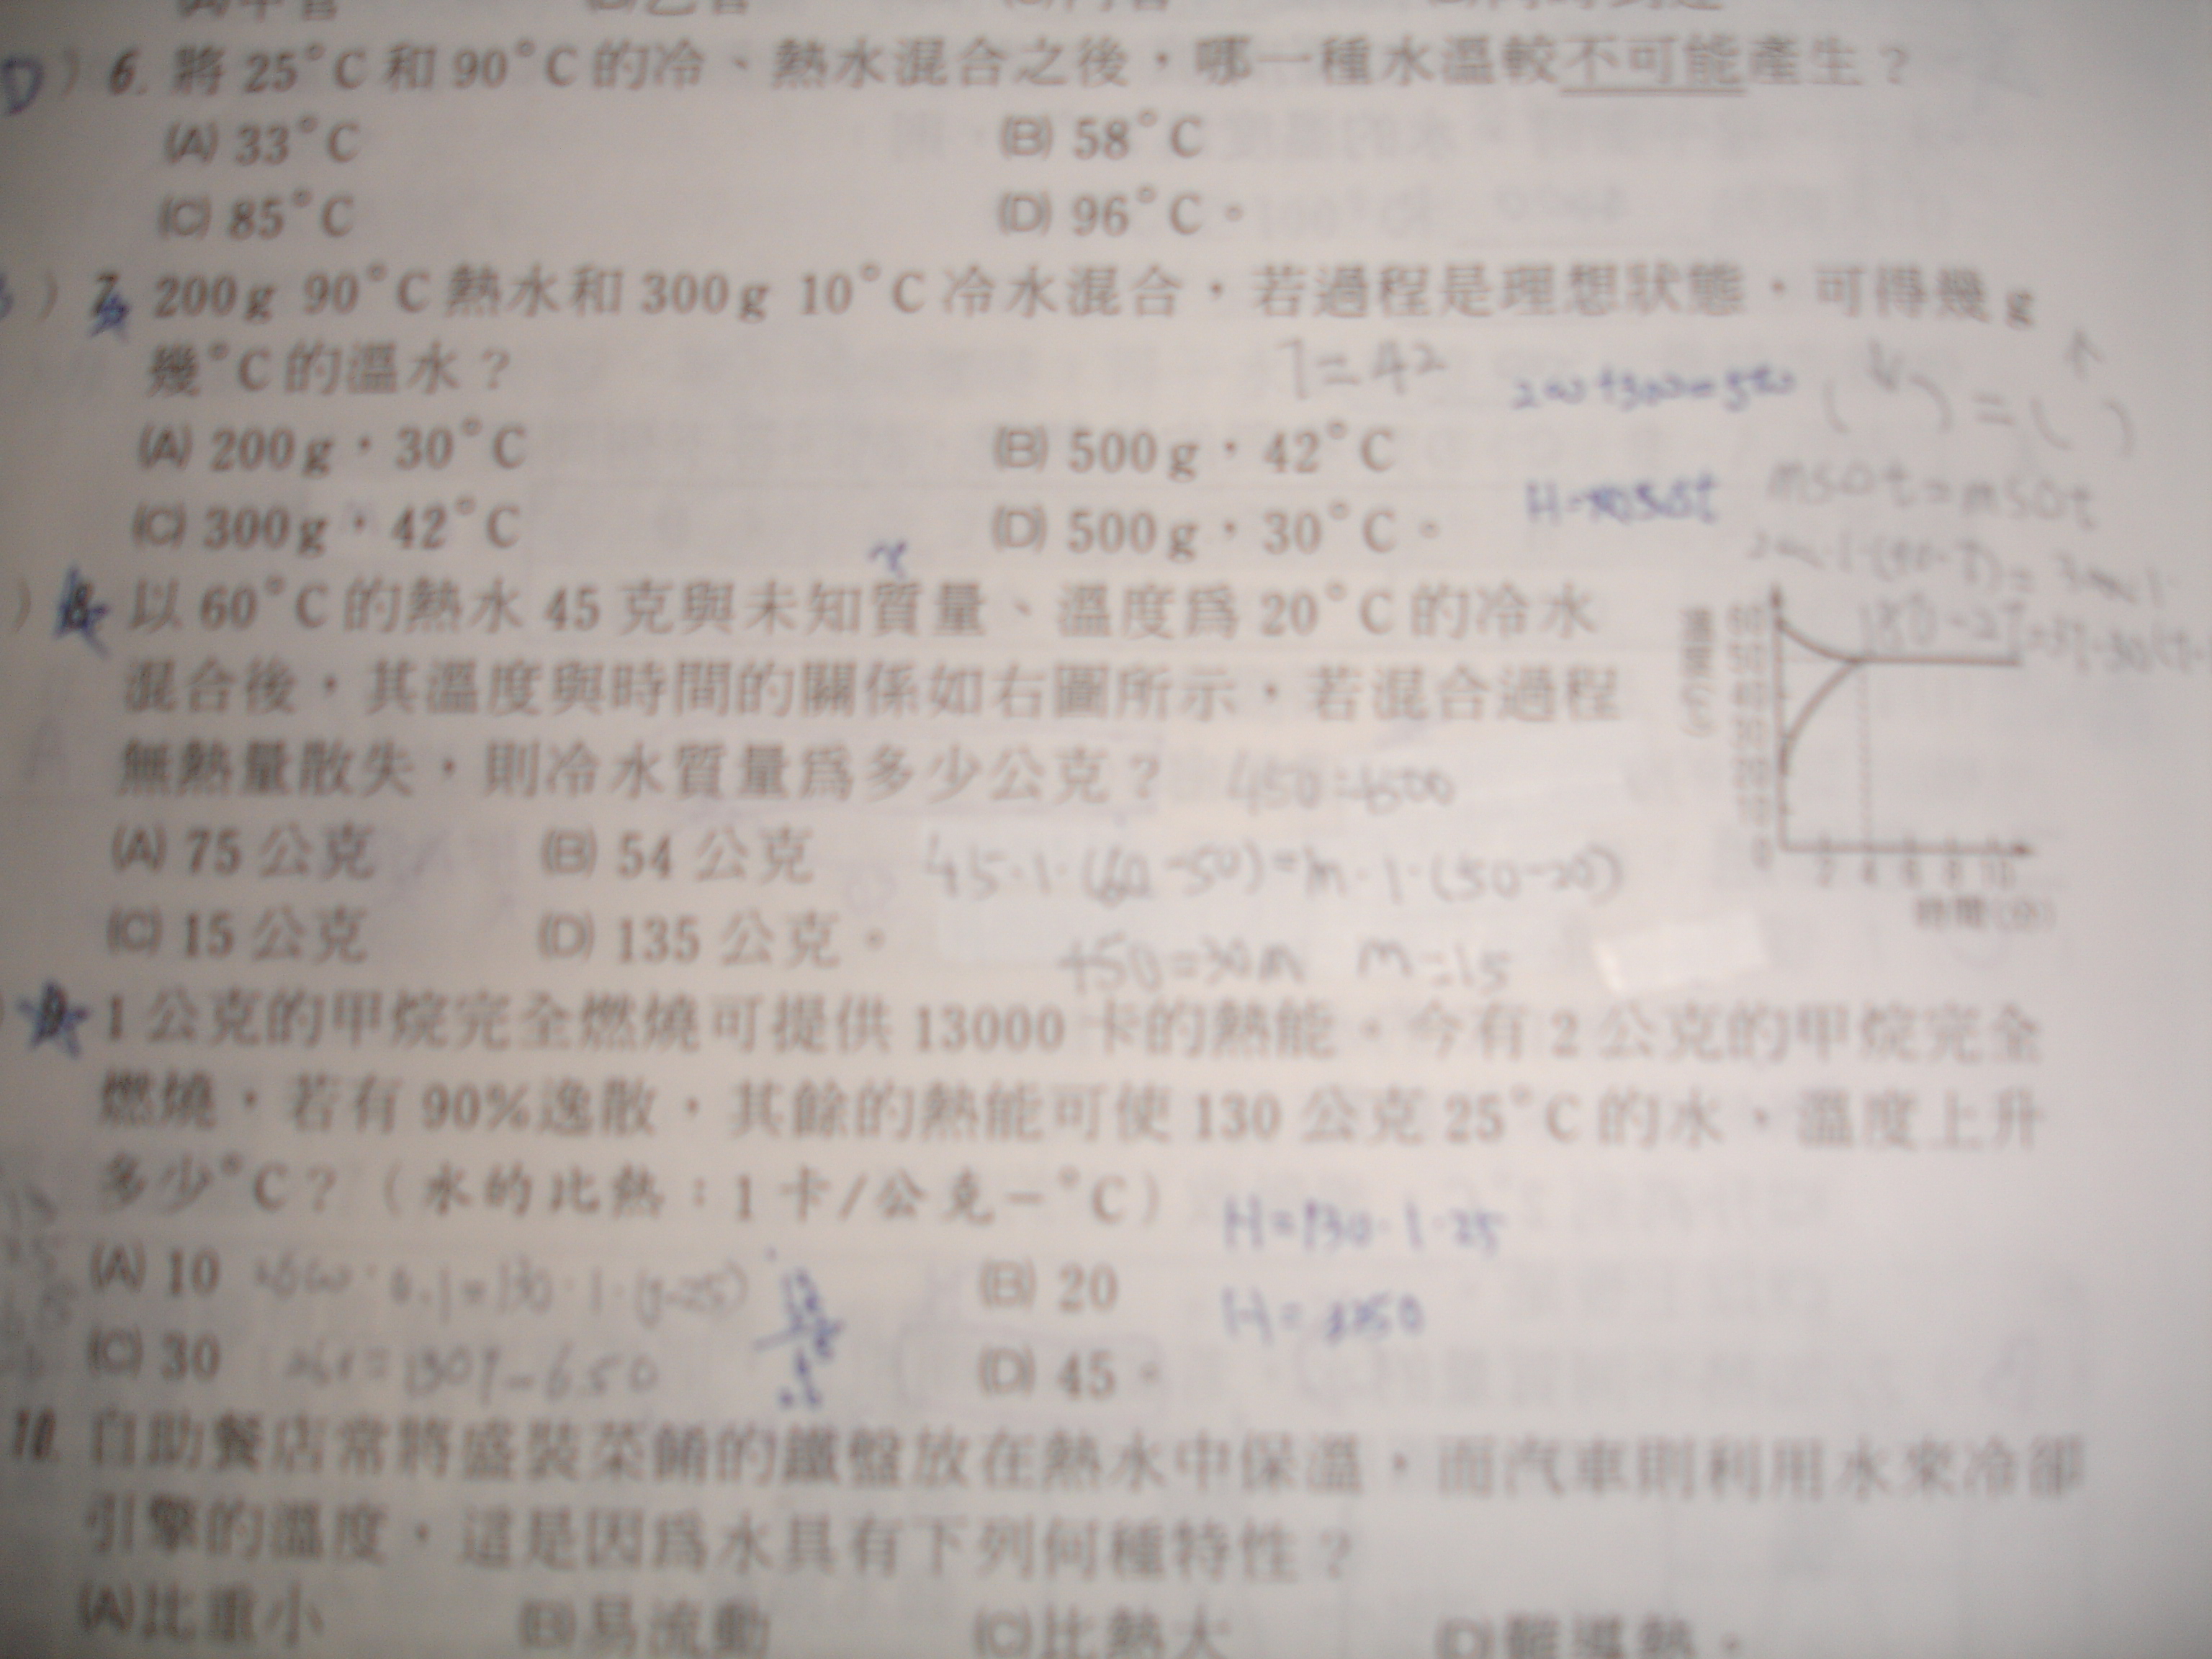 D ) 6. 將 25°C 和 90°C 的冷、熱水混合之後，哪一種水溫較不可能產生？
(A) 33°C (B) 58°C
(C) 85°C (D) 96°C。
) 7. 200g 90°C 熱水和 300g 10°C 冷水混合，若過程是理想狀態，可得幾 g
幾°C 的溫水？
T=42
200+300=500
( ) = ( )
(A) 200g，30°C (B) 500g，42°C
(C) 300g，42°C (D) 500g，30°C。
mSΔt=mSΔt
) 8. 以 60°C 的熱水 45 克與未知質量、溫度爲 20°C 的冷水
混合後，其溫度與時間的關係如右圖所示，若混合過程
無熱量散失，則冷水質量爲多少公克？
(A) 75 公克 (B) 54 公克
45·1·(60-50)=m·1·(50-20)
(C) 15 公克 (D) 135 公克。
450=30m m=15
2 4 6 8 10
時間(分)
9. 1 公克的甲烷完全燃燒可提供 13000 卡的熱能。今有 2 公克的甲烷完全
燃燒，若有 90%逸散，其餘的熱能可使 130 公克 25°C 的水，溫度上升
多少°C？（水的比熱：1 卡/公克－°C）
H=130·1·25
(A) 10 (B) 20
H=3250
(C) 30 (D) 45。
10. 自助餐店常將盛裝菜餚的鐵盤放在熱水中保溫，而汽車則利用水來冷卻
引擎的溫度，這是因爲水具有下列何種特性？
(A)比重小 (B)易流動 (C)比熱大 (D)難導熱。